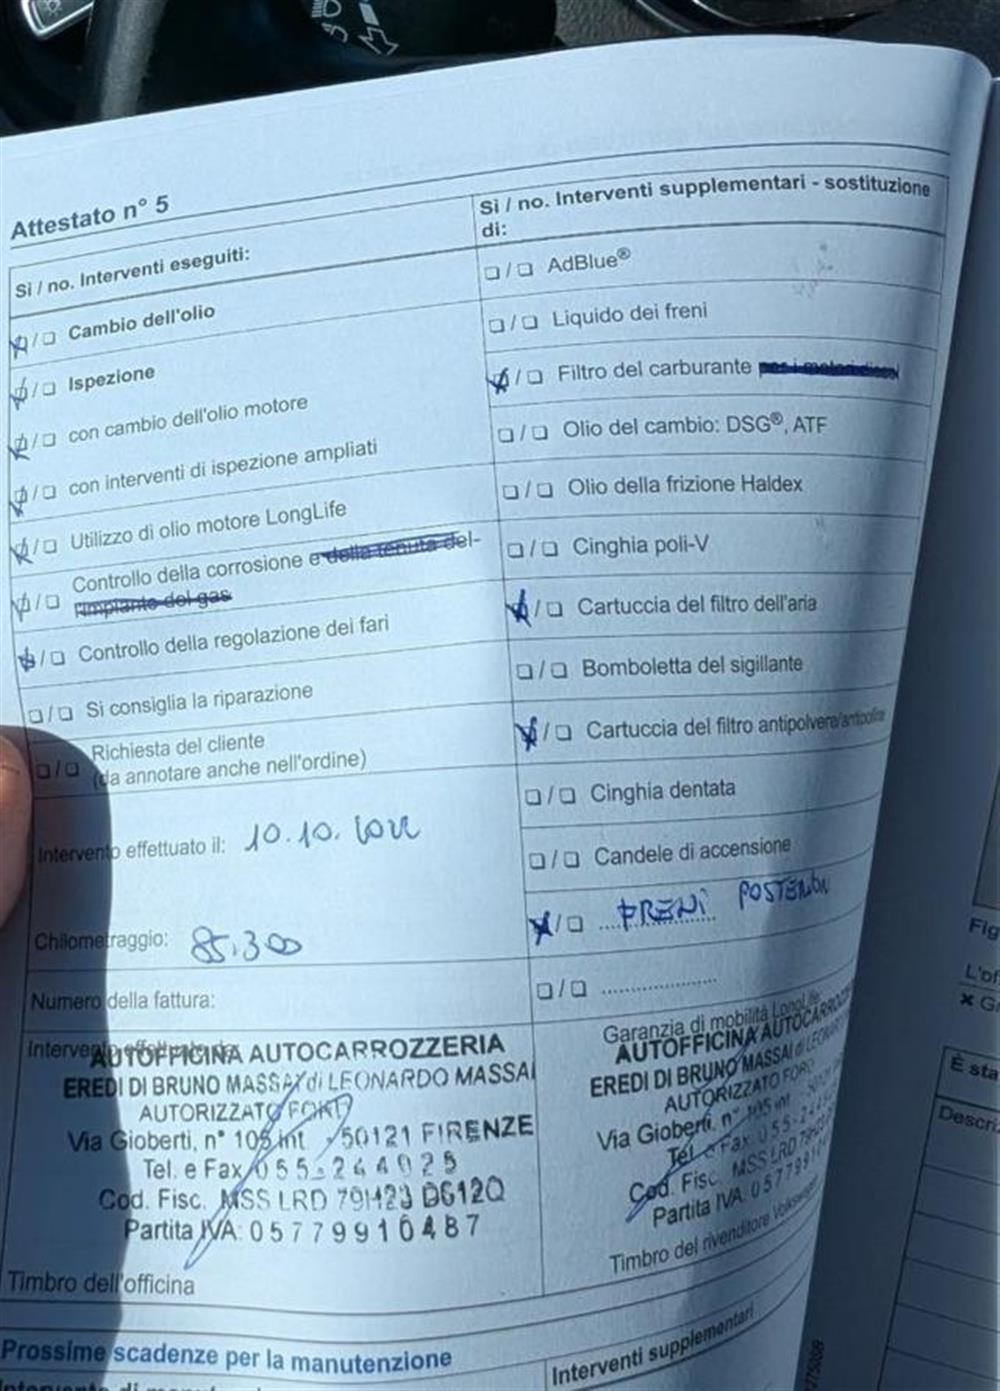 Attestato n° 5
Sì / no. Interventi eseguiti:
☒/☐ Cambio dell'olio
☒/☐ Ispezione
☒/☐ con cambio dell'olio motore
☒/☐ con interventi di ispezione ampliati
☒/☐ Utilizzo di olio motore LongLife
☒/☐ Controllo della corrosione e della tenuta del-
l'impianto del gas
☒/☐ Controllo della regolazione dei fari
☐/☐ Si consiglia la riparazione
☐/☐ Richiesta del cliente
(da annotare anche nell'ordine)
Intervento effettuato il: 10.10.2022
Chilometraggio: 85.300
Numero della fattura:
AUTOFFICINA AUTOCARROZZERIA
EREDI DI BRUNO MASSAI di LEONARDO MASSAI
AUTORIZZATO FORD
Via Gioberti, n° 105 int - 50121 FIRENZE
Tel. e Fax 055-244025
Cod. Fisc. MSS LRD 79H23 D612Q
Partita IVA: 05779910487
Timbro dell'officina
Sì / no. Interventi supplementari - sostituzione
di:
☐/☐ AdBlue®
☐/☐ Liquido dei freni
☒/☐ Filtro del carburante per i motori diesel
☐/☐ Olio del cambio: DSG®, ATF
☐/☐ Olio della frizione Haldex
☐/☐ Cinghia poli-V
☒/☐ Cartuccia del filtro dell'aria
☐/☐ Bomboletta del sigillante
☒/☐ Cartuccia del filtro antipolvere/antipolline
☐/☐ Cinghia dentata
☐/☐ Candele di accensione
☒/☐ FRENI POSTERIORI
☐/☐ ....................
Garanzia di mobilità LongLife
AUTOFFICINA AUTOCARROZZERIA
EREDI DI BRUNO MASSAI di
AUTORIZZATO FORD
Via Gioberti, n° 105 int
Tel. e Fax 055-244
Cod. Fisc. MSS LRD
Partita IVA: 0577991
Timbro del rivenditore Volkswagen
Prossime scadenze per la manutenzione
Interventi supplementari
Fig
L'of
È sta
Descri